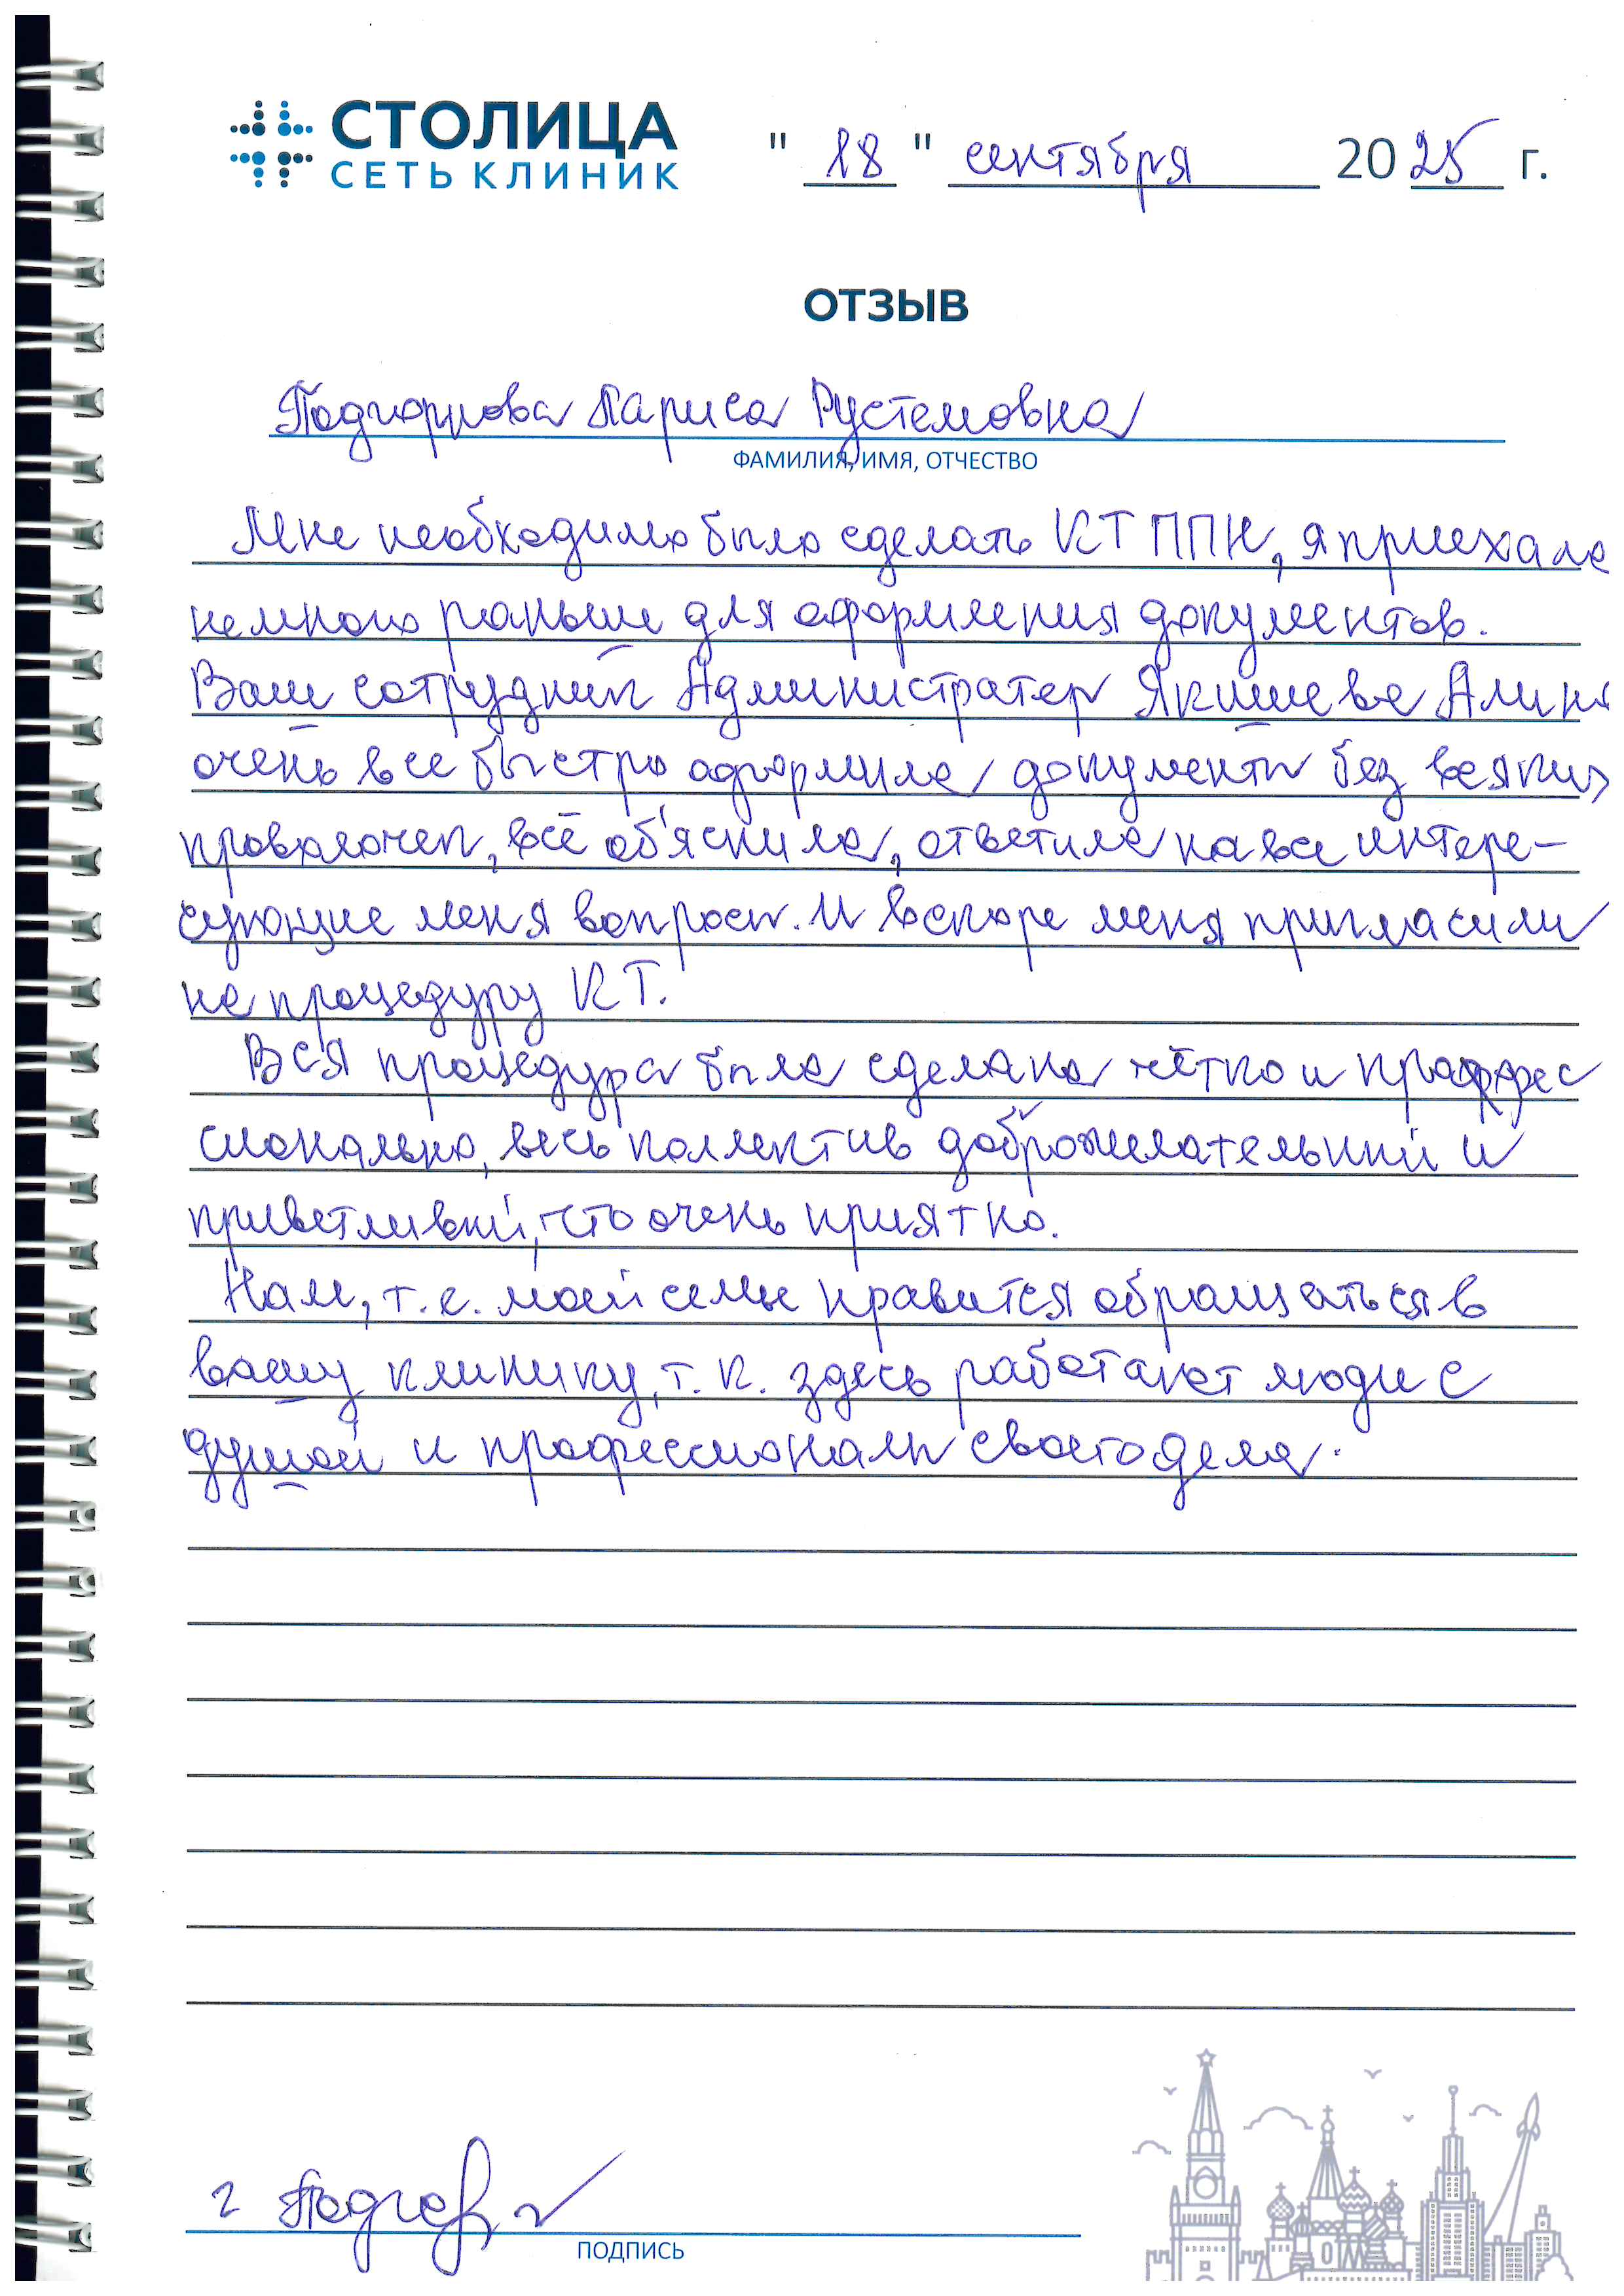 СТОЛИЦА
СЕТЬ КЛИНИК
" 18 " сентября 2025 г.
ОТЗЫВ
Лариса Рустемовна
ФАМИЛИЯ, ИМЯ, ОТЧЕСТВО
Мне необходимо было сделать КТ ППН, я приехала
немного раньше для оформления документов.
Ваш сотрудник Администратор Якишева Алина
очень все быстро оформила документы без всяких
проволочек, всё об'яснила, ответила на все интере-
сующие меня вопросы. И вскоре меня пригласили
на процедуру КТ.
Вся процедура была сделана чётко и профес
сионально, весь коллектив доброжелательный и
приветливый, что очень приятно.
Нам, т.е. моей семье нравится обращаться в
вашу клинику, т.к. здесь работают люди с
душой и профессионалы своего дела.
ПОДПИСЬ